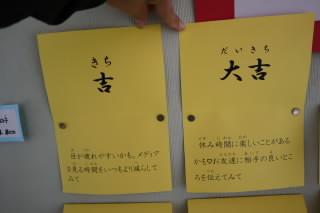 きち
吉
目が疲れやすいかも。メディア
を見る時間をいつもより減らして
みて
だいきち
大吉
休み時間に楽しいことがある
かも♡お友達に相手の良いとこ
ろを伝えてみて